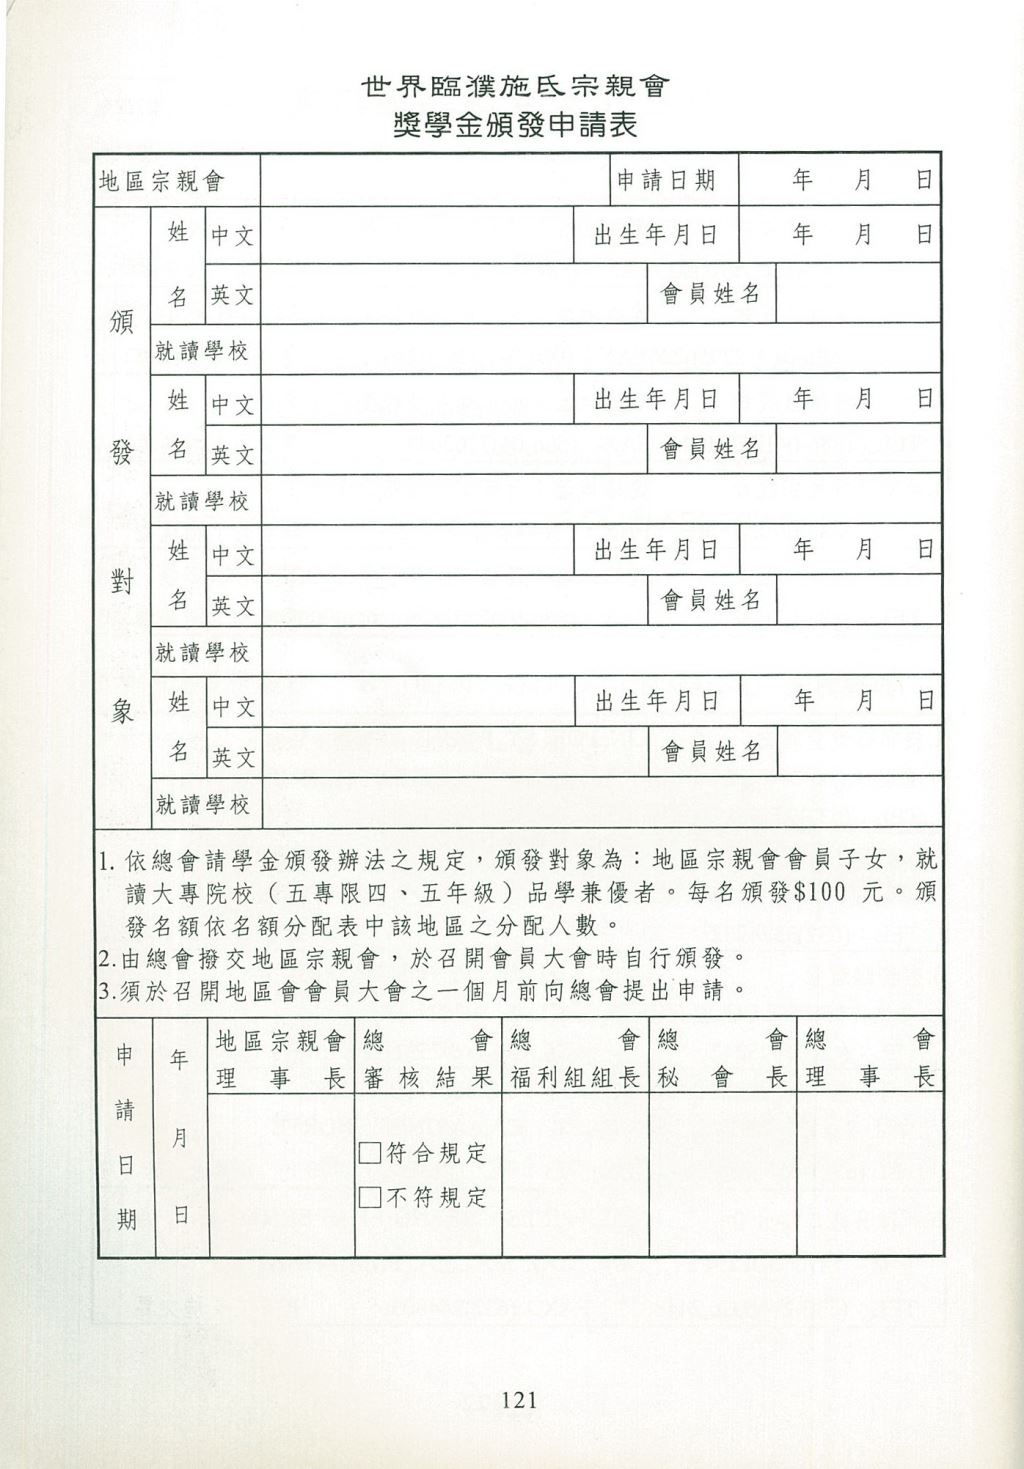 世界臨濮施氏宗親會
獎學金頒發申請表
地區宗親會 申請日期 年 月 日
頒發對象
姓名 中文 出生年月日 年 月 日
英文 會員姓名
就讀學校
姓名 中文 出生年月日 年 月 日
英文 會員姓名
就讀學校
姓名 中文 出生年月日 年 月 日
英文 會員姓名
就讀學校
姓名 中文 出生年月日 年 月 日
英文 會員姓名
就讀學校
1. 依總會請學金頒發辦法之規定，頒發對象為：地區宗親會會員子女，就
讀大專院校（五專限四、五年級）品學兼優者。每名頒發$100 元。頒
發名額依名額分配表中該地區之分配人數。
2.由總會撥交地區宗親會，於召開會員大會時自行頒發。
3.須於召開地區會會員大會之一個月前向總會提出申請。
申請日期 年 月 日
地區宗親會 總會 總會 總會 總會
理事長 審核結果 福利組組長 秘會長 理事長
□符合規定
□不符規定
121